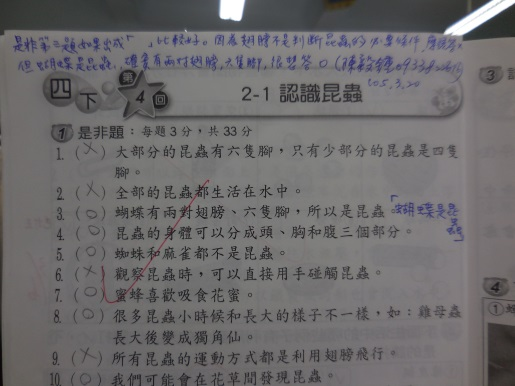 是非第三題如果出成「 」比較好。因為翅膀不是判斷昆蟲的必要條件,
但蝴蝶是昆蟲,確實有兩對翅膀、六隻腳,很想答O
105.3.20
四下 第4回 2-1 認識昆蟲
1 是非題:每題3分,共33分
1.(X)大部分的昆蟲有六隻腳,只有少部分的昆蟲是四隻
腳。
2.(X)全部的昆蟲都生活在水中。
3.(O)蝴蝶有兩對翅膀、六隻腳,所以是昆蟲。「蝴蝶是昆
蟲」
4.(O)昆蟲的身體可以分成頭、胸和腹三個部分。
5.(O)蜘蛛和麻雀都不是昆蟲。
6.(X)觀察昆蟲時,可以直接用手碰觸昆蟲。
7.(O)蜜蜂喜歡吸食花蜜。
8.(O)很多昆蟲小時候和長大的樣子不一樣,如:雞母蟲
長大後變成獨角仙。
9.(X)所有昆蟲的運動方式都是利用翅膀飛行。
10.(O)我們可能會在花草間發現昆蟲。
3
4
①